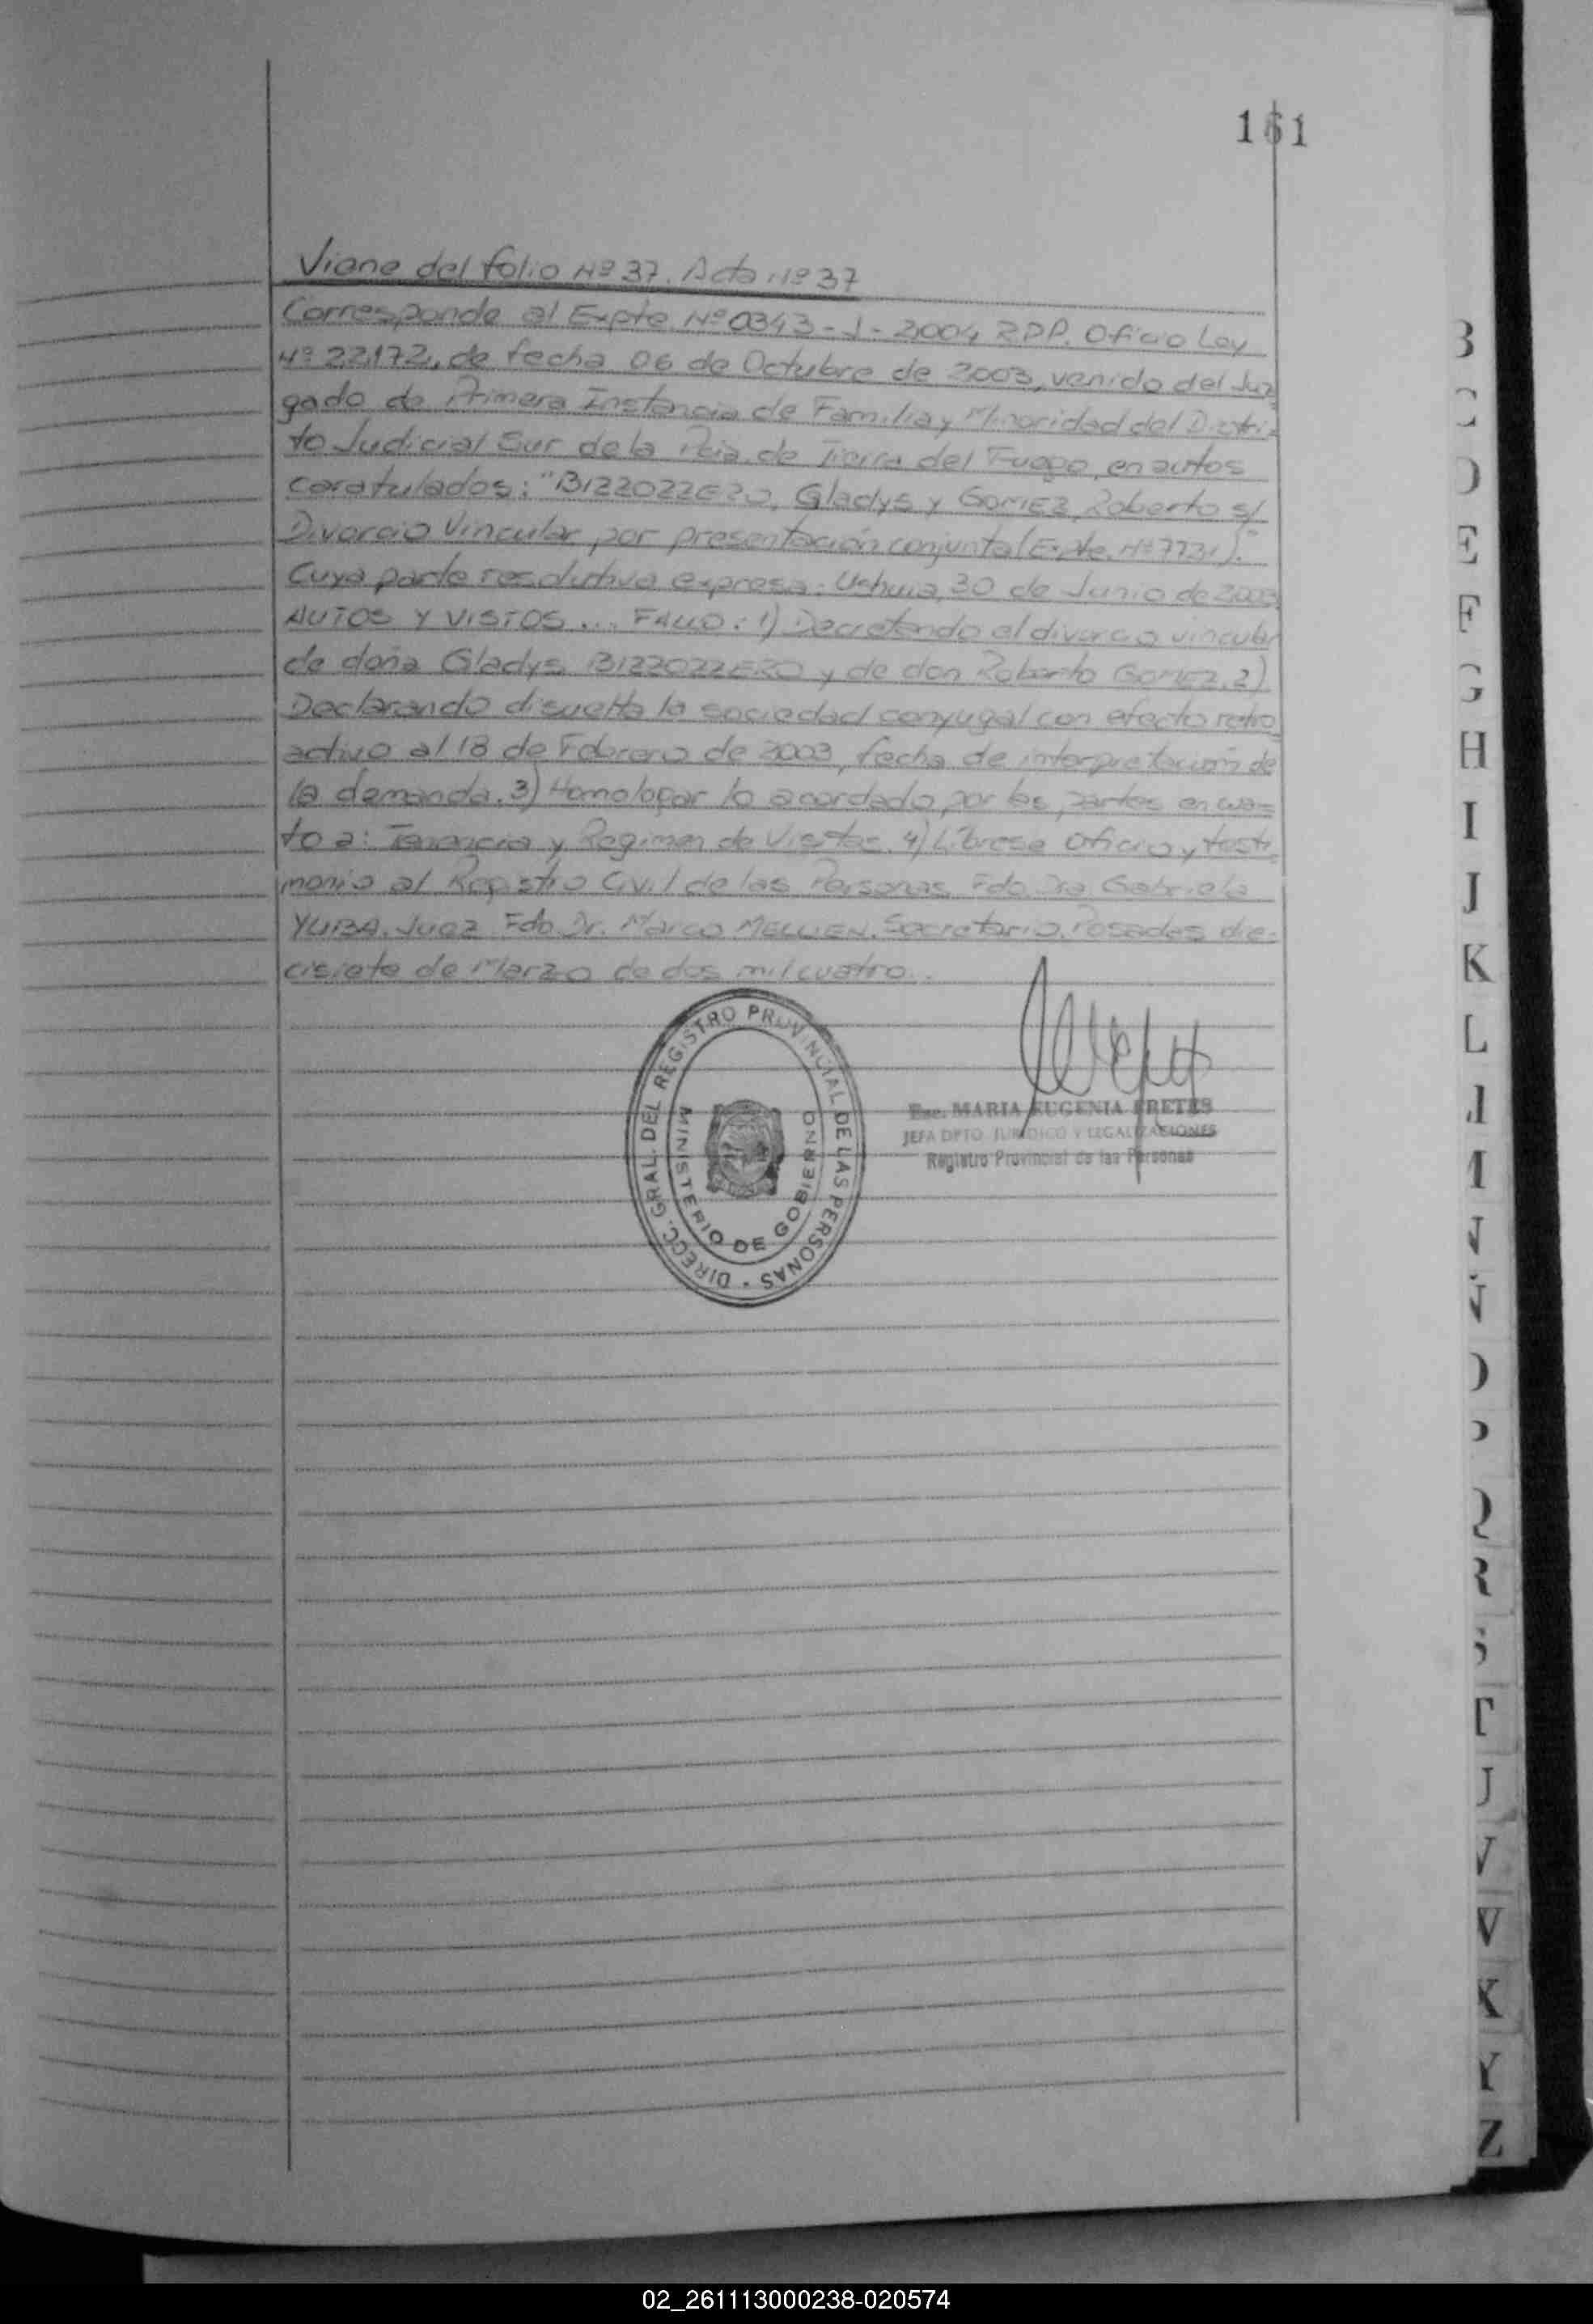 161
Viene del folio Nº 37. Acta Nº 37
Corresponde al Expte Nº 0343-J-2004 R.P.P. Oficio Ley
Nº 22.172, de fecha 06 de Octubre de 2003, venido del Juz
gado de Primera Instancia de Familia y Minoridad del Distri-
to Judicial Sur de la Pcia. de Tierra del Fuego, en autos
caratulados: "BIZZOZZERO, Gladys y GOMEZ, Roberto s/
Divorcio Vincular por presentación conjunta (Expte. Nº 7731)."
Cuya parte resolutiva expresa: Ushuia, 30 de Junio de 2003
AUTOS Y VISTOS... FALLO: 1) Decretando el divorcio vincular
de doña Gladys BIZZOZZERO y de don Roberto GOMEZ. 2)
Declarando disuelta la sociedad conyugal con efecto retro
activo al 18 de Febrero de 2003, fecha de interpretación de
la demanda. 3) Homologar lo acordado por las partes en cuan-
to a: Tenencia y Regimen de Visitas. 4) Librese oficio y testi-
monio al Registro Civil de las Personas. Fdo. Dra Gabriela
YUBA. Juez. Fdo. Dr. Marco MELLIEN. Secretario. Posadas die-
cisiete de Marzo de dos mil cuatro..
DIRECC. GRAL. DEL REGISTRO PROVINCIAL DE LAS PERSONAS
MINISTERIO DE GOBIERNO
Esc. MARIA EUGENIA FRETES
JEFA DPTO. JURIDICO Y LEGALIZACIONES
Registro Provincial de las Personas
E
F
G
H
I
J
K
L
V
K
Y
Z
02_261113000238-020574